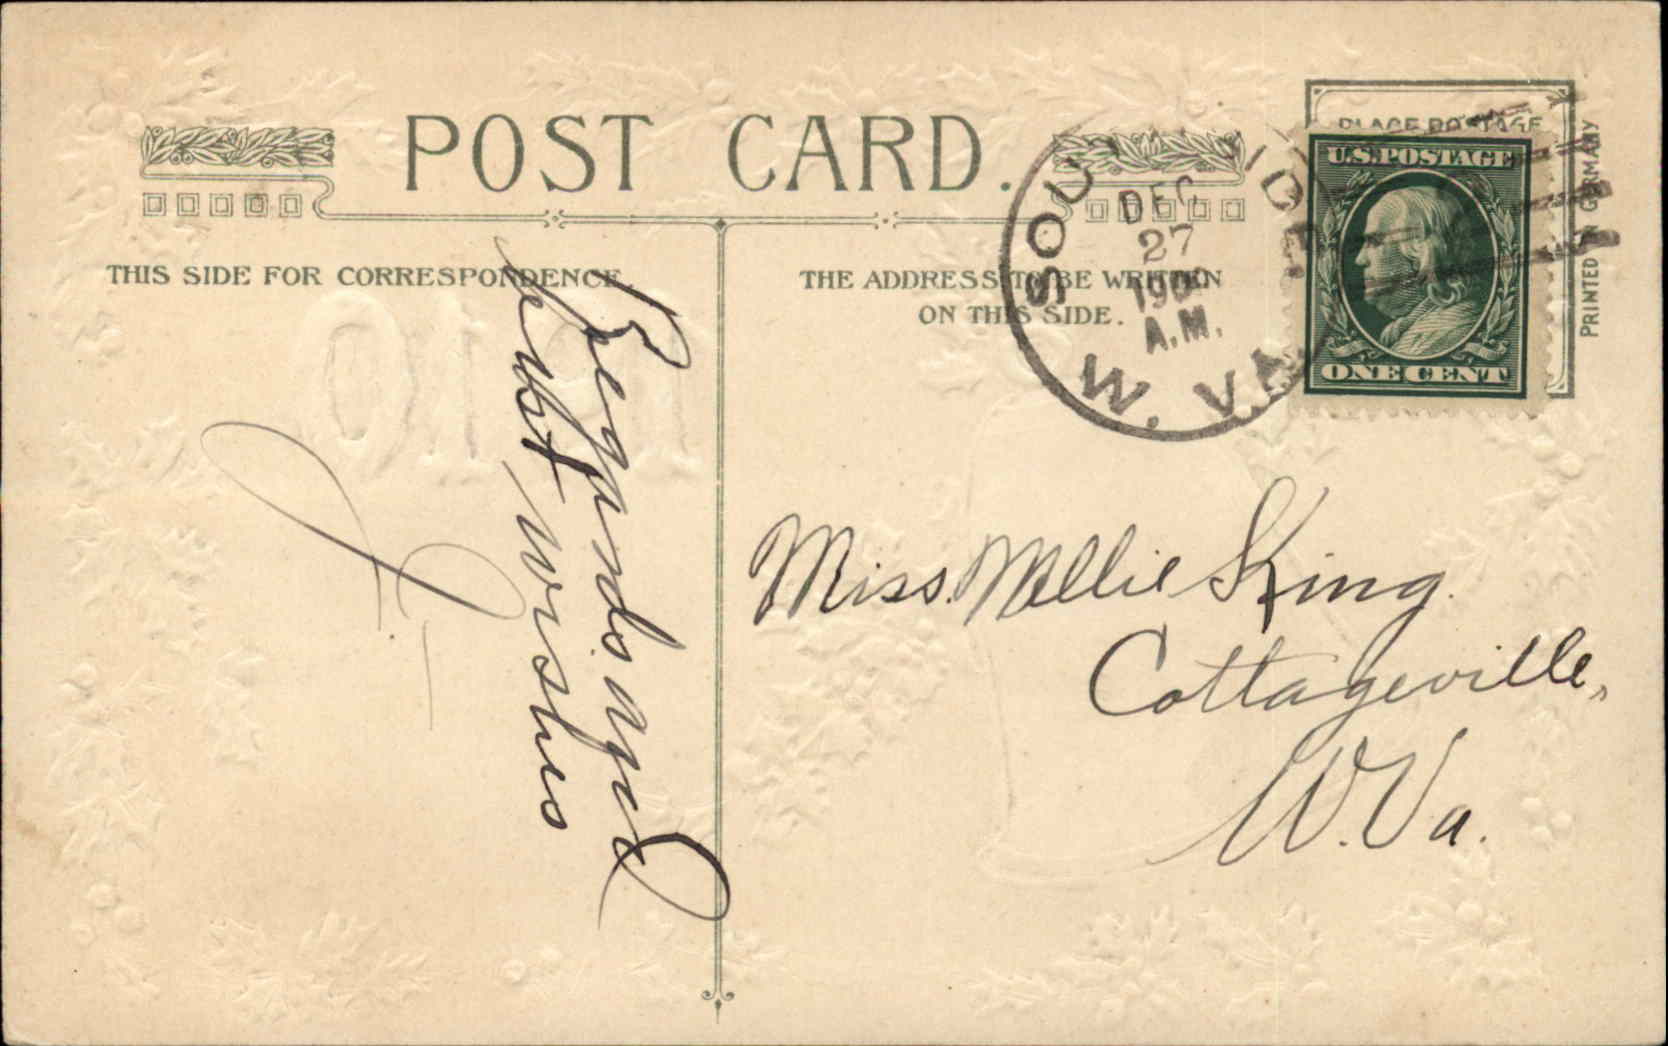 POST CARD.
THIS SIDE FOR CORRESPONDENCE.
THE ADDRESS TO BE WRITTEN
ON THIS SIDE.
PLACE POSTAGE
U.S. POSTAGE
ONE CENT
PRINTED IN GERMANY
DEC
27
A.M.
W. VA.
Regards and
best wishes
J
Miss. Mellie King.
Cottageville,
W. Va.